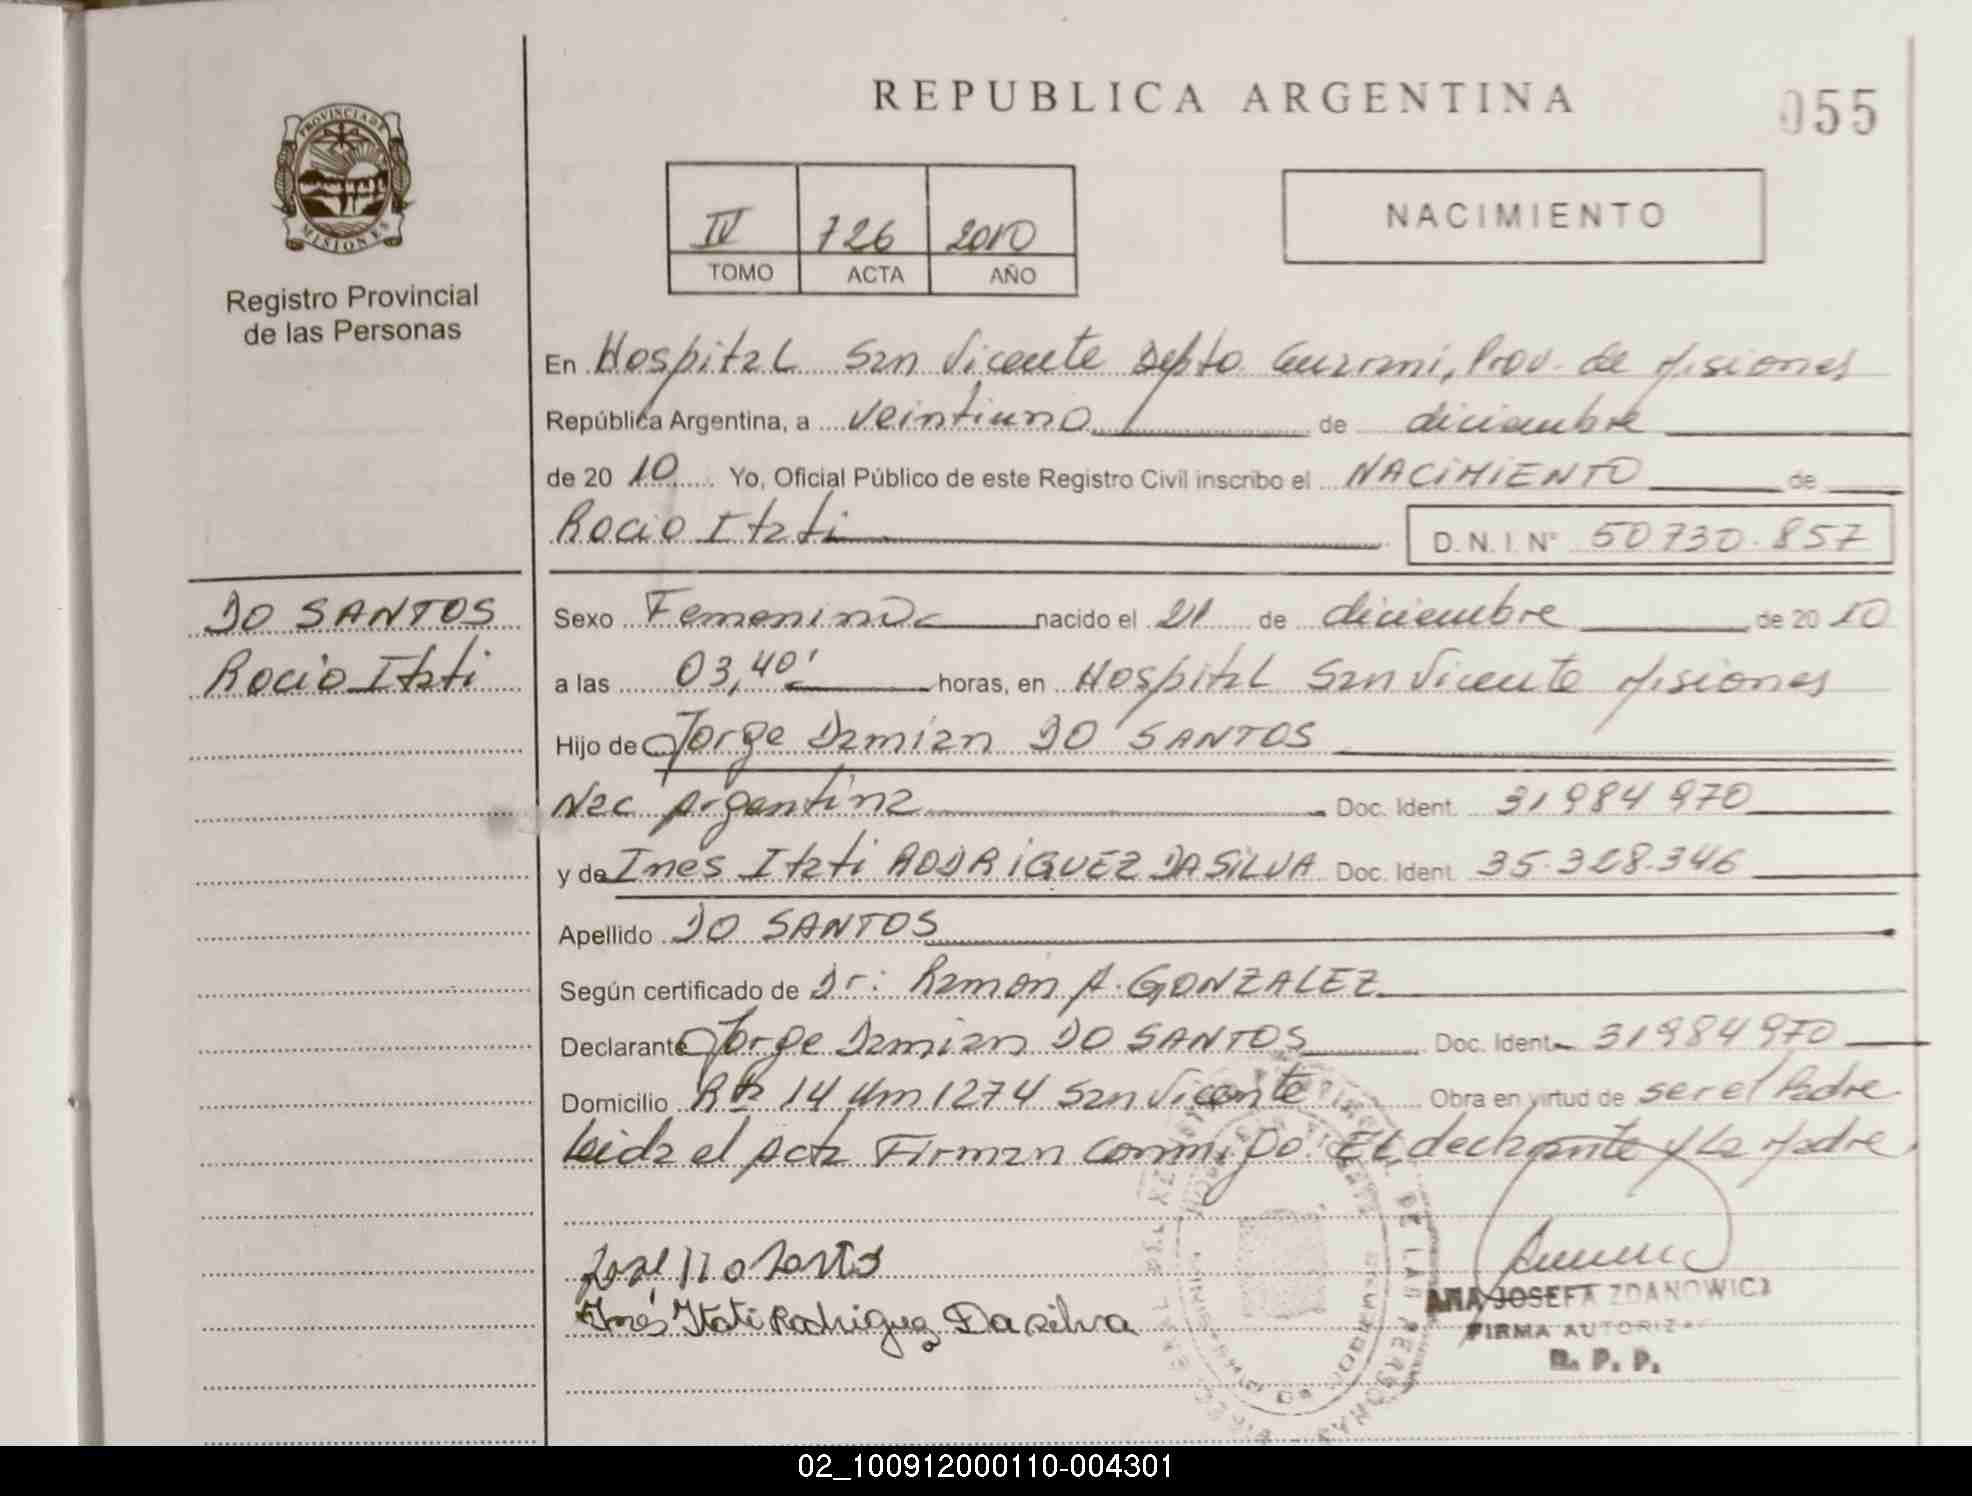 REPUBLICA ARGENTINA
055
PROVINCIA DE
MISIONES
Registro Provincial
de las Personas
IV 726 2010
TOMO ACTA AÑO
NACIMIENTO
En Hospital San Vicente Depto Guarani, Prov. de Misiones
República Argentina, a veintiuno de diciembre
de 20 10 Yo, Oficial Público de este Registro Civil inscribo el NACIMIENTO de
Rocio Itati D. N. I. N° 50730.857
DO SANTOS
Rocio Itati
Sexo Femenino nacido el 21 de diciembre de 20 10
a las 03,40' horas, en Hospital San Vicente Misiones
Hijo de Jorge Damian DO SANTOS
Nac Argentina Doc. Ident. 31984970
y de Ines Itati RODRIGUEZ DA SILVA Doc. Ident. 35.328.346
Apellido DO SANTOS
Según certificado de Dr: Ramon A. GONZALEZ
Declarante Jorge Damian DO SANTOS Doc. Ident 31984970
Domicilio Rta 14 Km 1274 San Vicente Obra en virtud de ser el Padre
Leida el Acta Firman conmigo El declarante y La Madre.
Inés Itati Rodriguez Da silva
ANA JOSEFA ZDANOWICZ
FIRMA AUTORIZA
R. P. P.
DE LAS PERSONAS
02_100912000110-004301